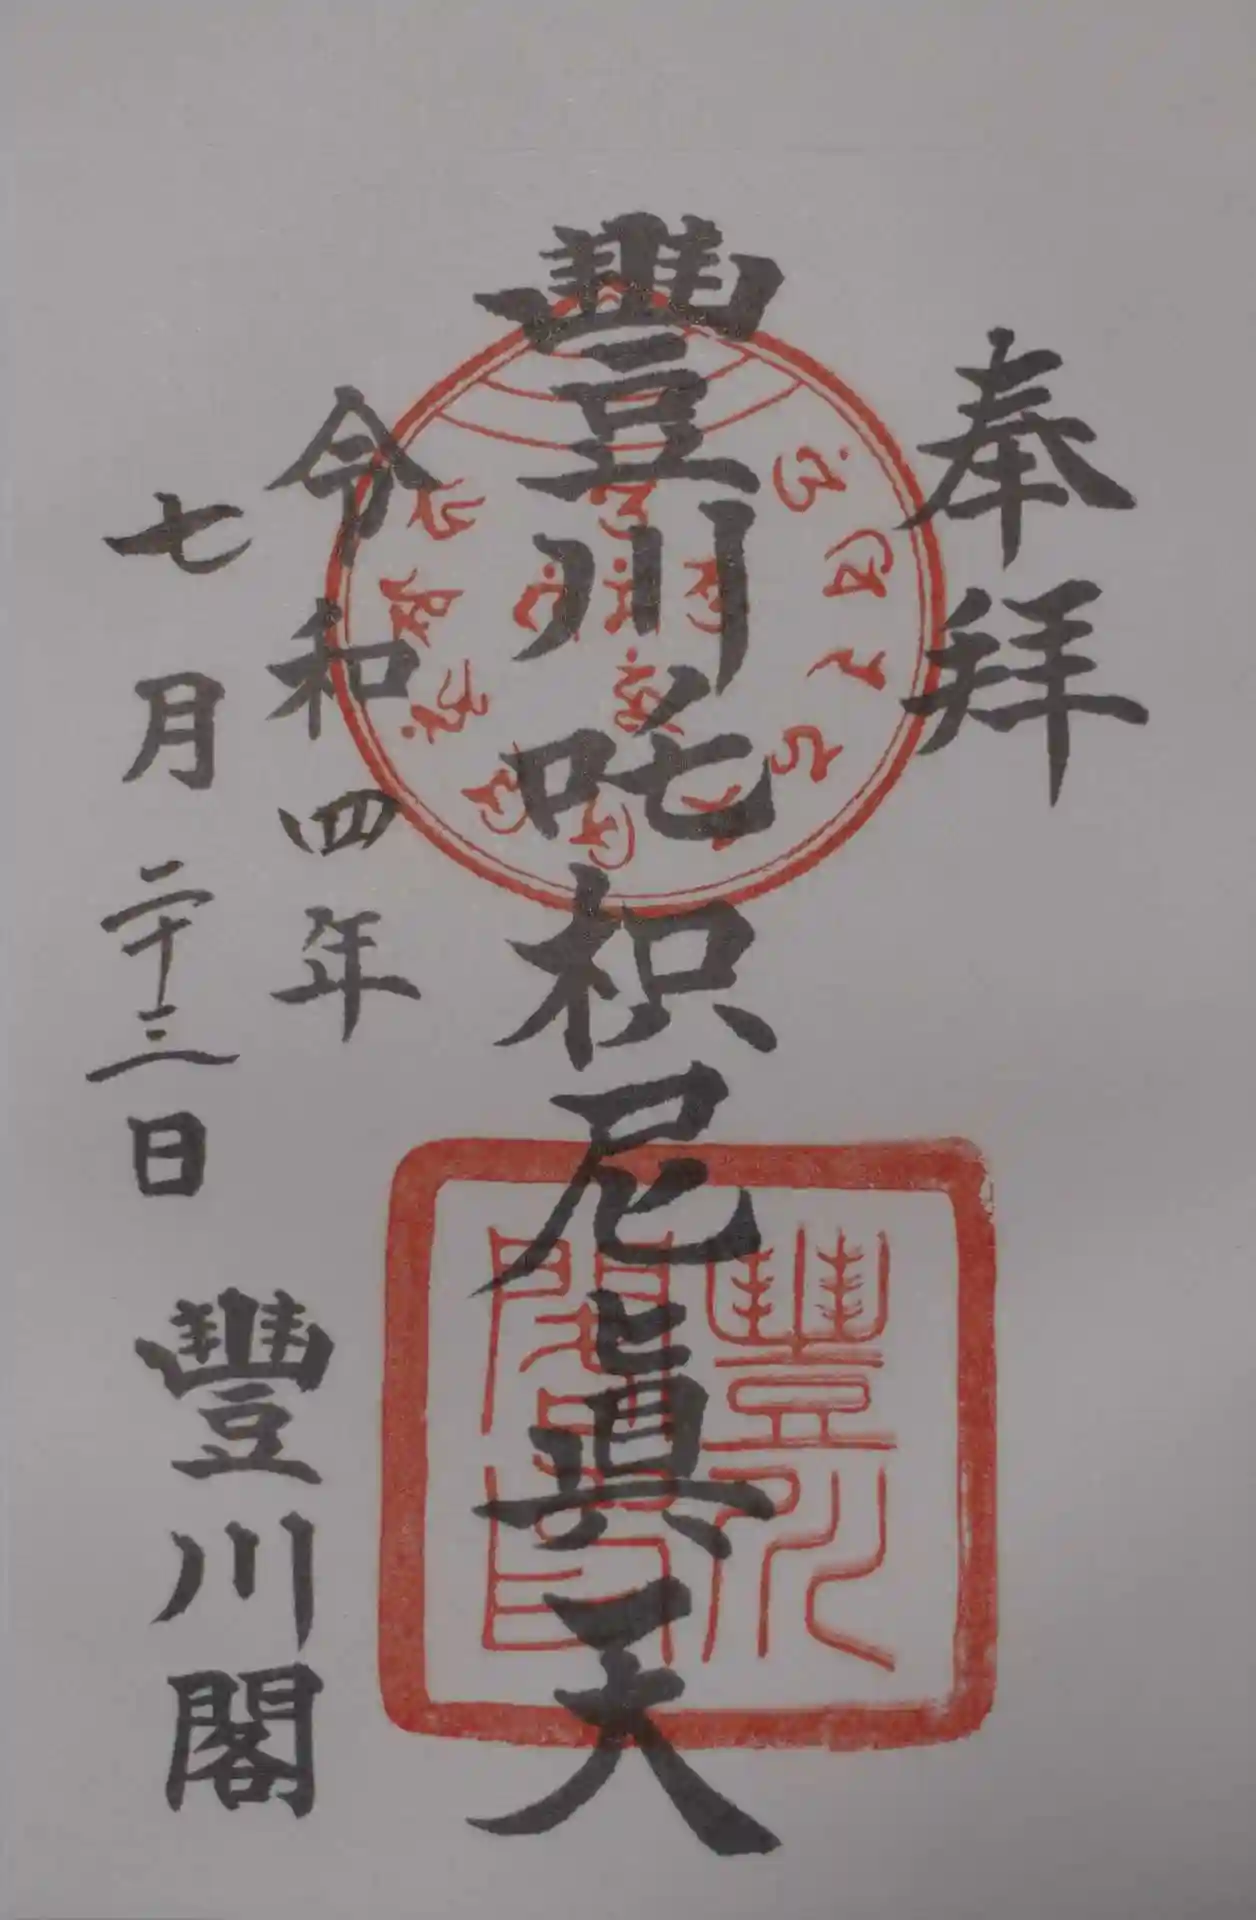 奉拜
豐川吒枳尼眞天
令和四年
七月二十三日
豐川閣
豐川閣印